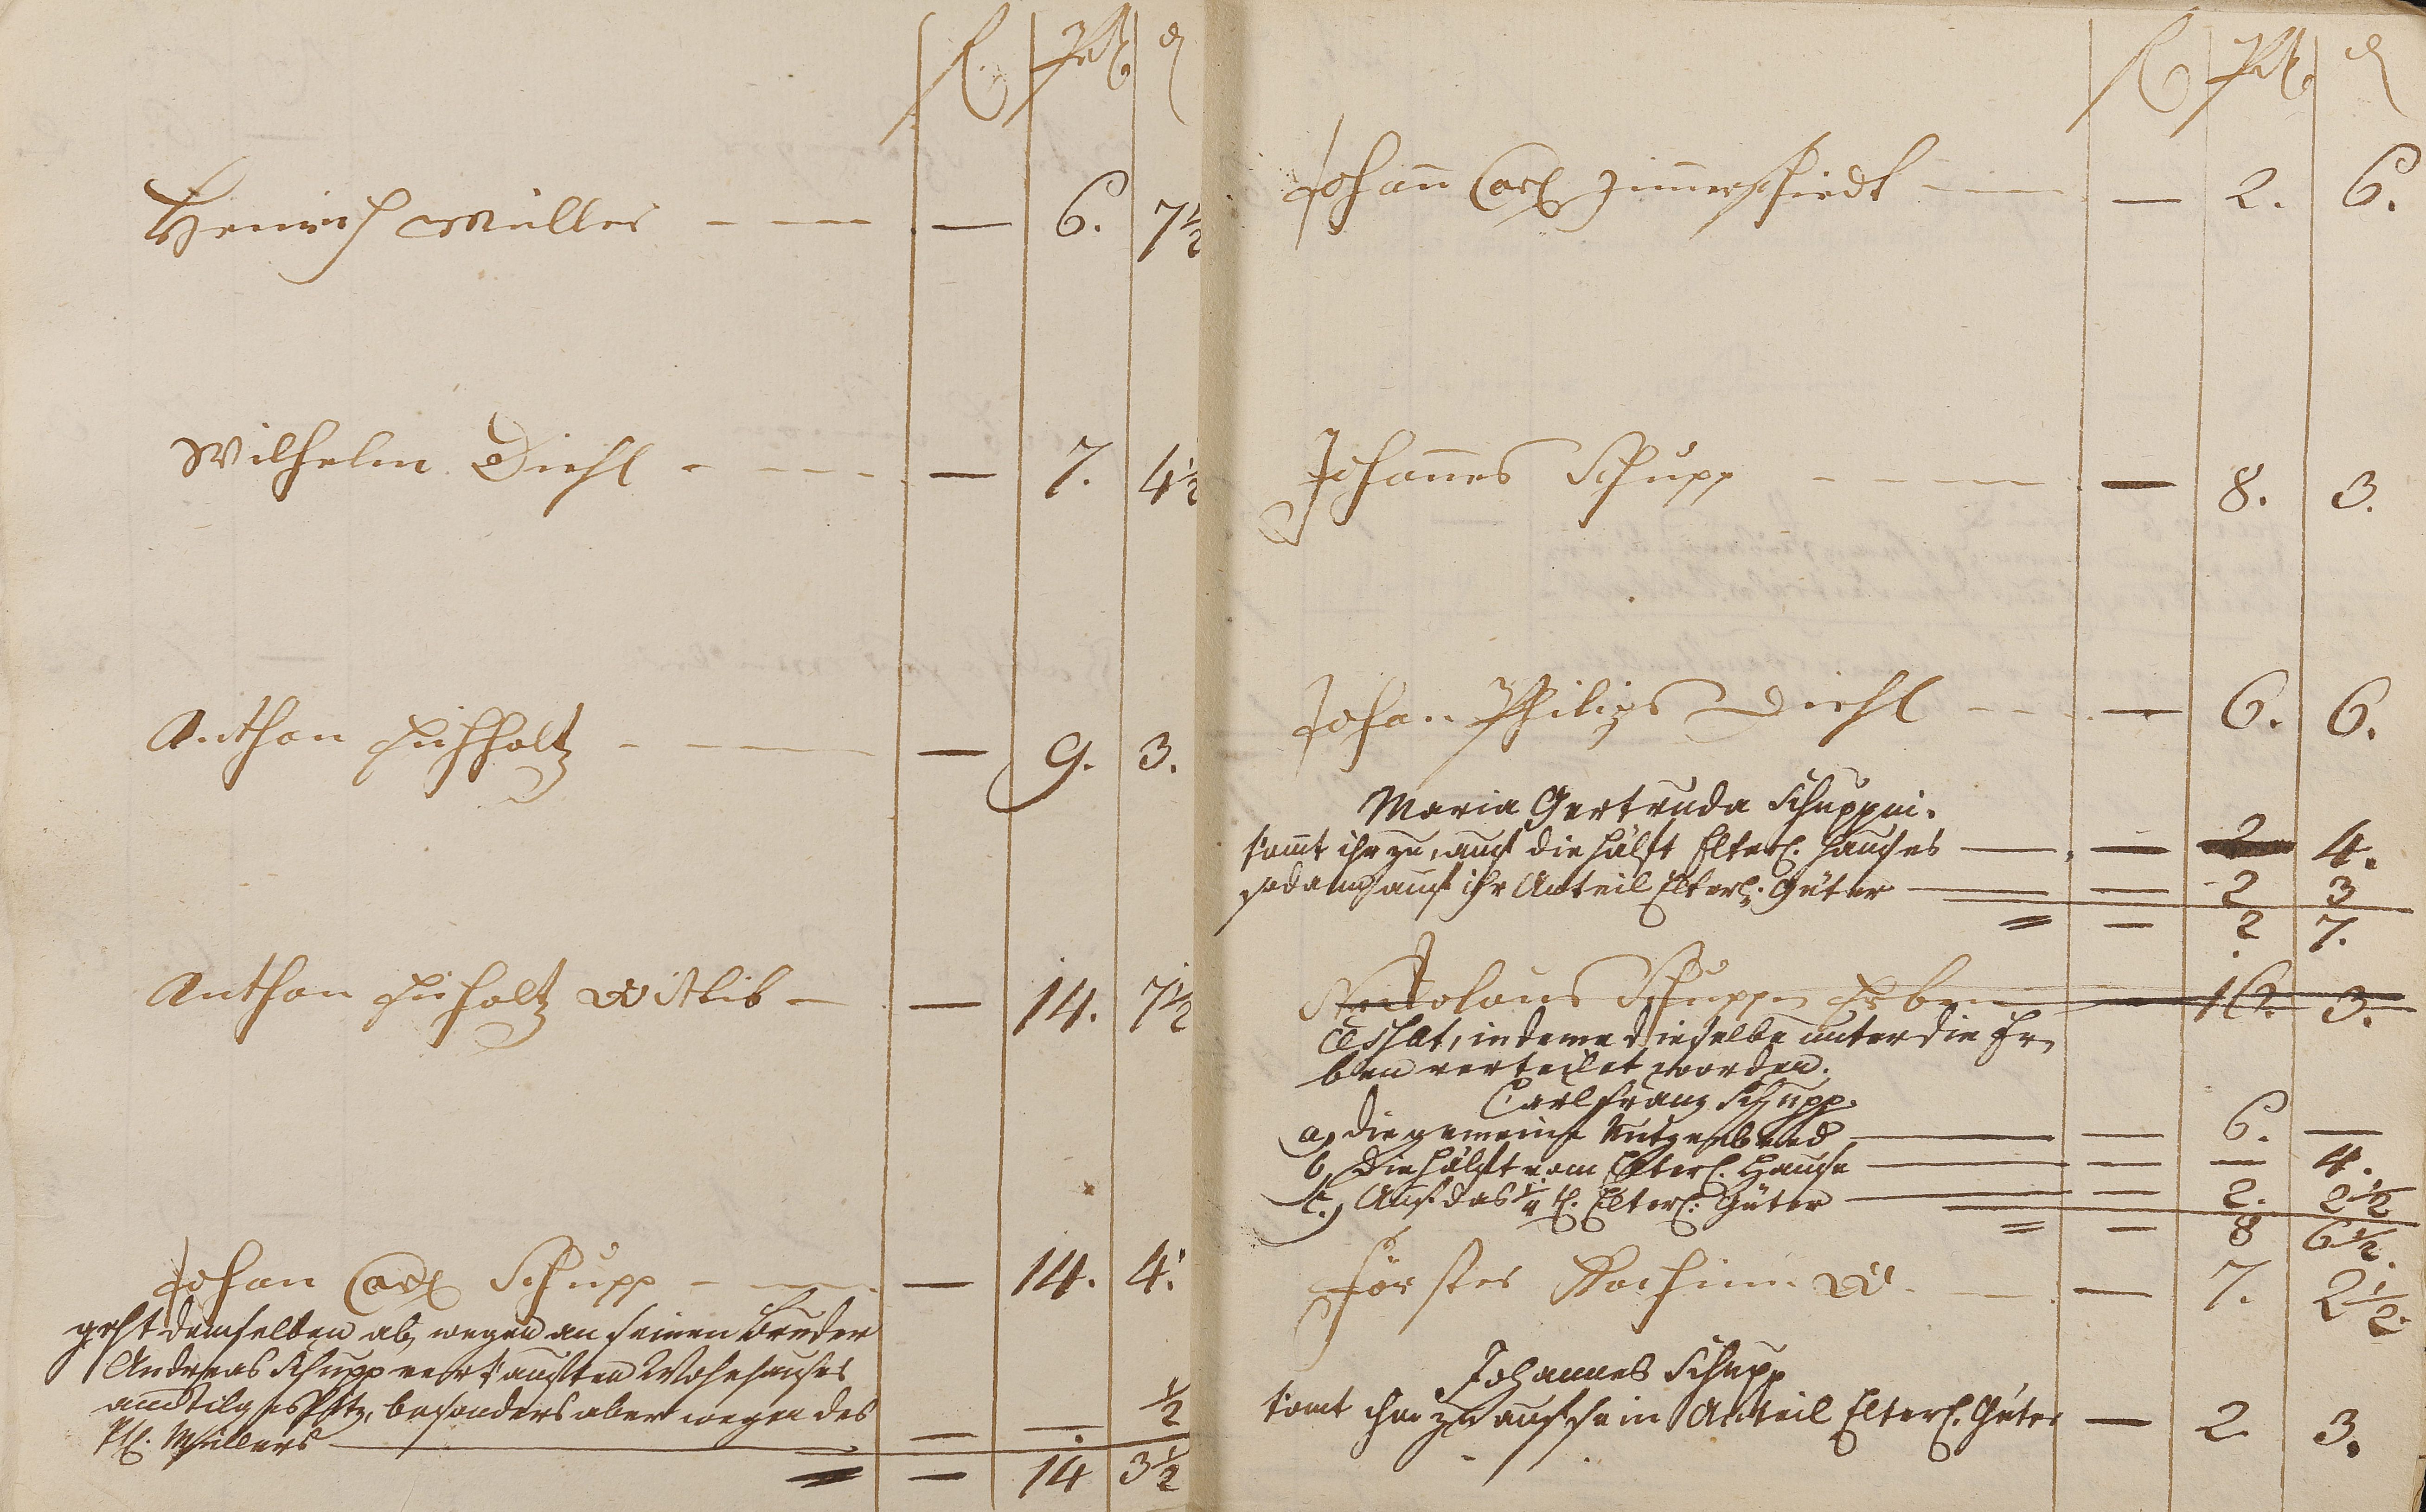 f. Alb. d
Henrich Müller — — 6. 7½
Wilhelm Diehl — — 7. 4½
Anthon Eichholtz — — 9. 3.
Anthon Eicholtz Wittib — — 14. 7½
Johan Carl Schupp — — 14. 4.
geht demselben ab, wegen an seinen Bruder
Andreas Schupp verkauften Wohnhauses
besonders aber wegen des
Müllers — — — ½
= — 14 3½
f. Alb. d
Johann Carl Zimmerschiedt — — 2. 6.
Johannes Schupp — — 8. 3.
Johan Philips Diehl — — 6. 6.
Maria Gertruda Schuppin.
komt ihr zu, auf die hälft Elterl. Hauses — — 2 4.
sodann auf ihr Anteil Elterl. Güter — — 2 3
= — 2 7.
Nicolaus Schuppen Erben — 16. 3.
cessat, indeme dieselbe unter die Er,
ben verteilet worden.
Carl Franz Schupp.
a, die gemeine Nutzen — — 6. —
b, Die hälft vom Elterl. Hause — — — 4.
c., Auf das ¼ tl. Elterl. Güter — — 2. 2½
= — 8 6½.
Förster W. — — 7. 2½.
Johannes Schupp
komt ihm zu auf sein Anteil Elterl. Güter — 2. 3.